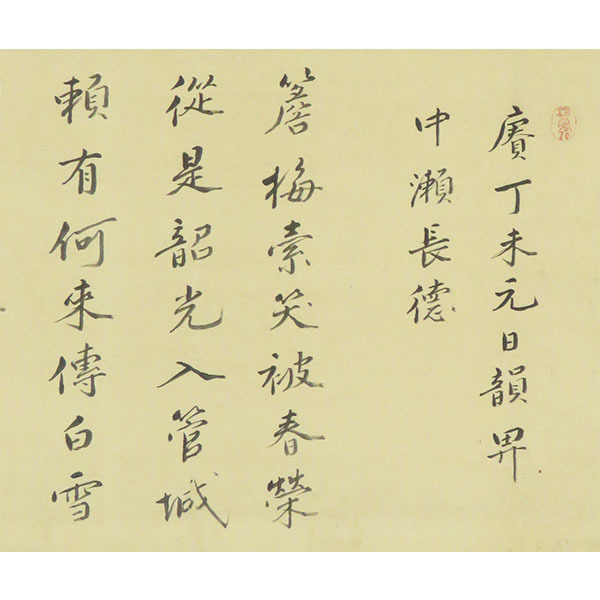 賡丁未元日韻畀
中瀬長德
簷梅索笑被春榮
從是韶光入管城
頼有何來傳白雪